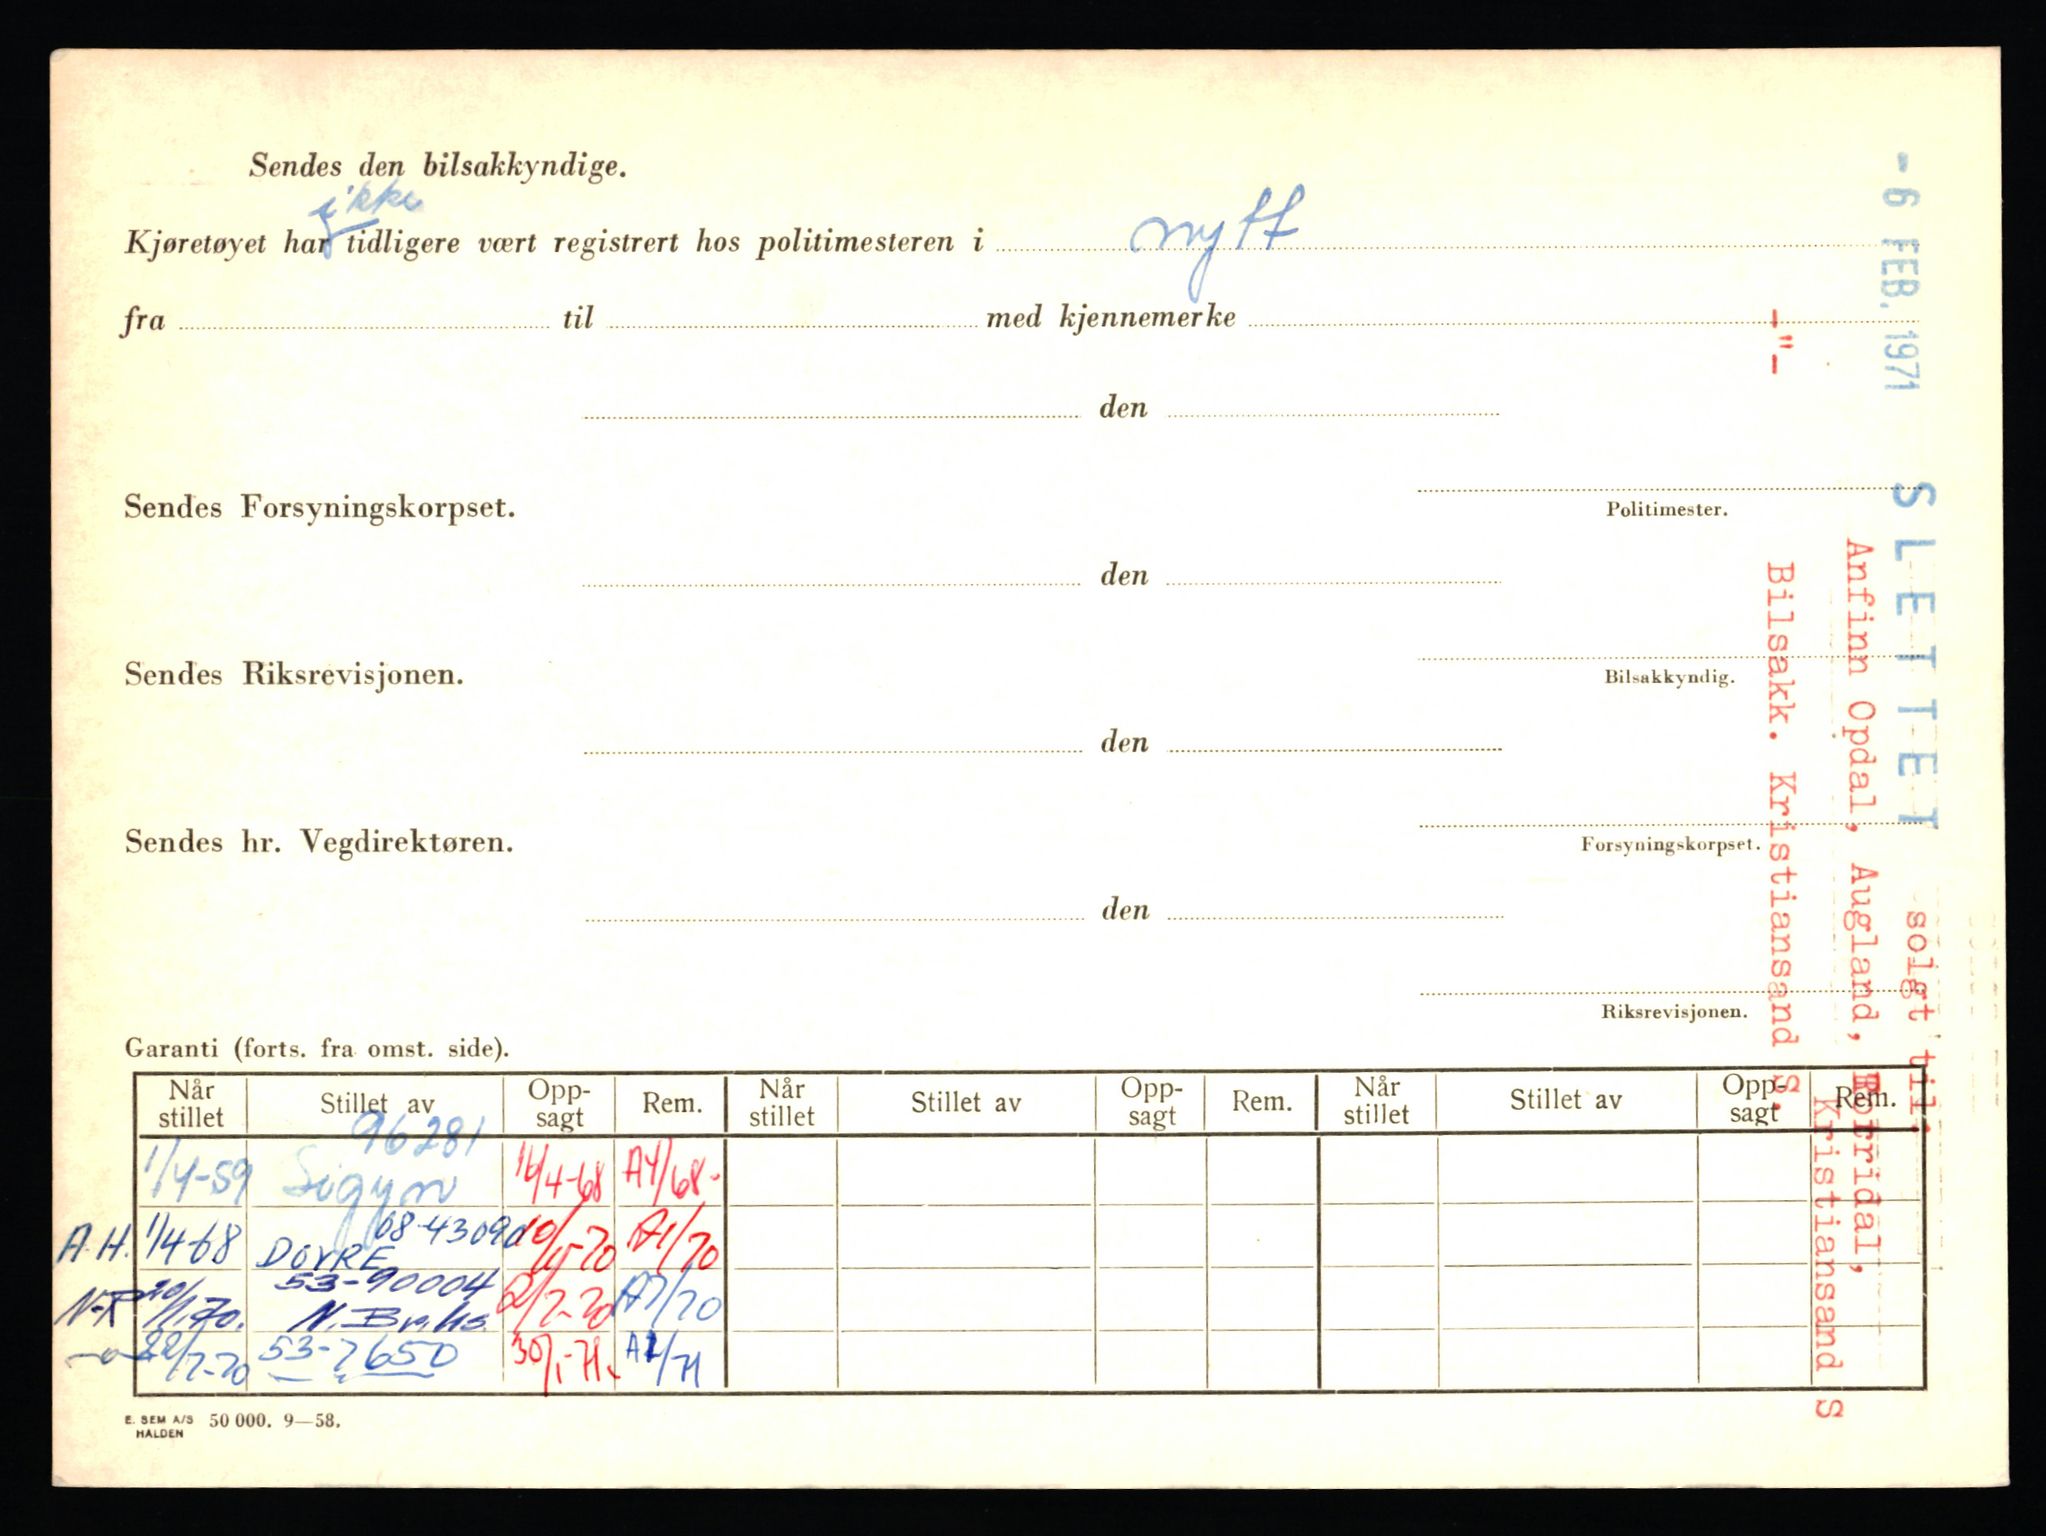 Sendes den bilsakkyndige.
ikke
Kjøretøyet har tidligere vært registrert hos politimesteren i nytt
fra til med kjennemerke
den
Politimester.
Sendes Forsyningskorpset.
den
Bilsakkyndig.
Sendes Riksrevisjonen.
den
Forsyningskorpset.
Sendes hr. Vegdirektøren.
den
Riksrevisjonen.
- 6 FEB. 1971 SLETTET solgt til:
Anfinn Opdal, Augland, Torridal,
Kristiansand S
-"- Bilsakk. Kristiansand S.
Garanti (forts. fra omst. side).
Når stillet Stillet av Opp-sagt Rem. Når stillet Stillet av Opp-sagt Rem. Når stillet Stillet av Opp-sagt Rem.
96281
1/4-59 Sigyn 16/4-68 A4/68-
08-4309
A.H. 1/4-68 DOVRE A1/70
53-90004
N. A7/70
22/7-70 53-7650 30/1-71. /71
E. SEM A/S 50 000. 9—58.
HALDEN